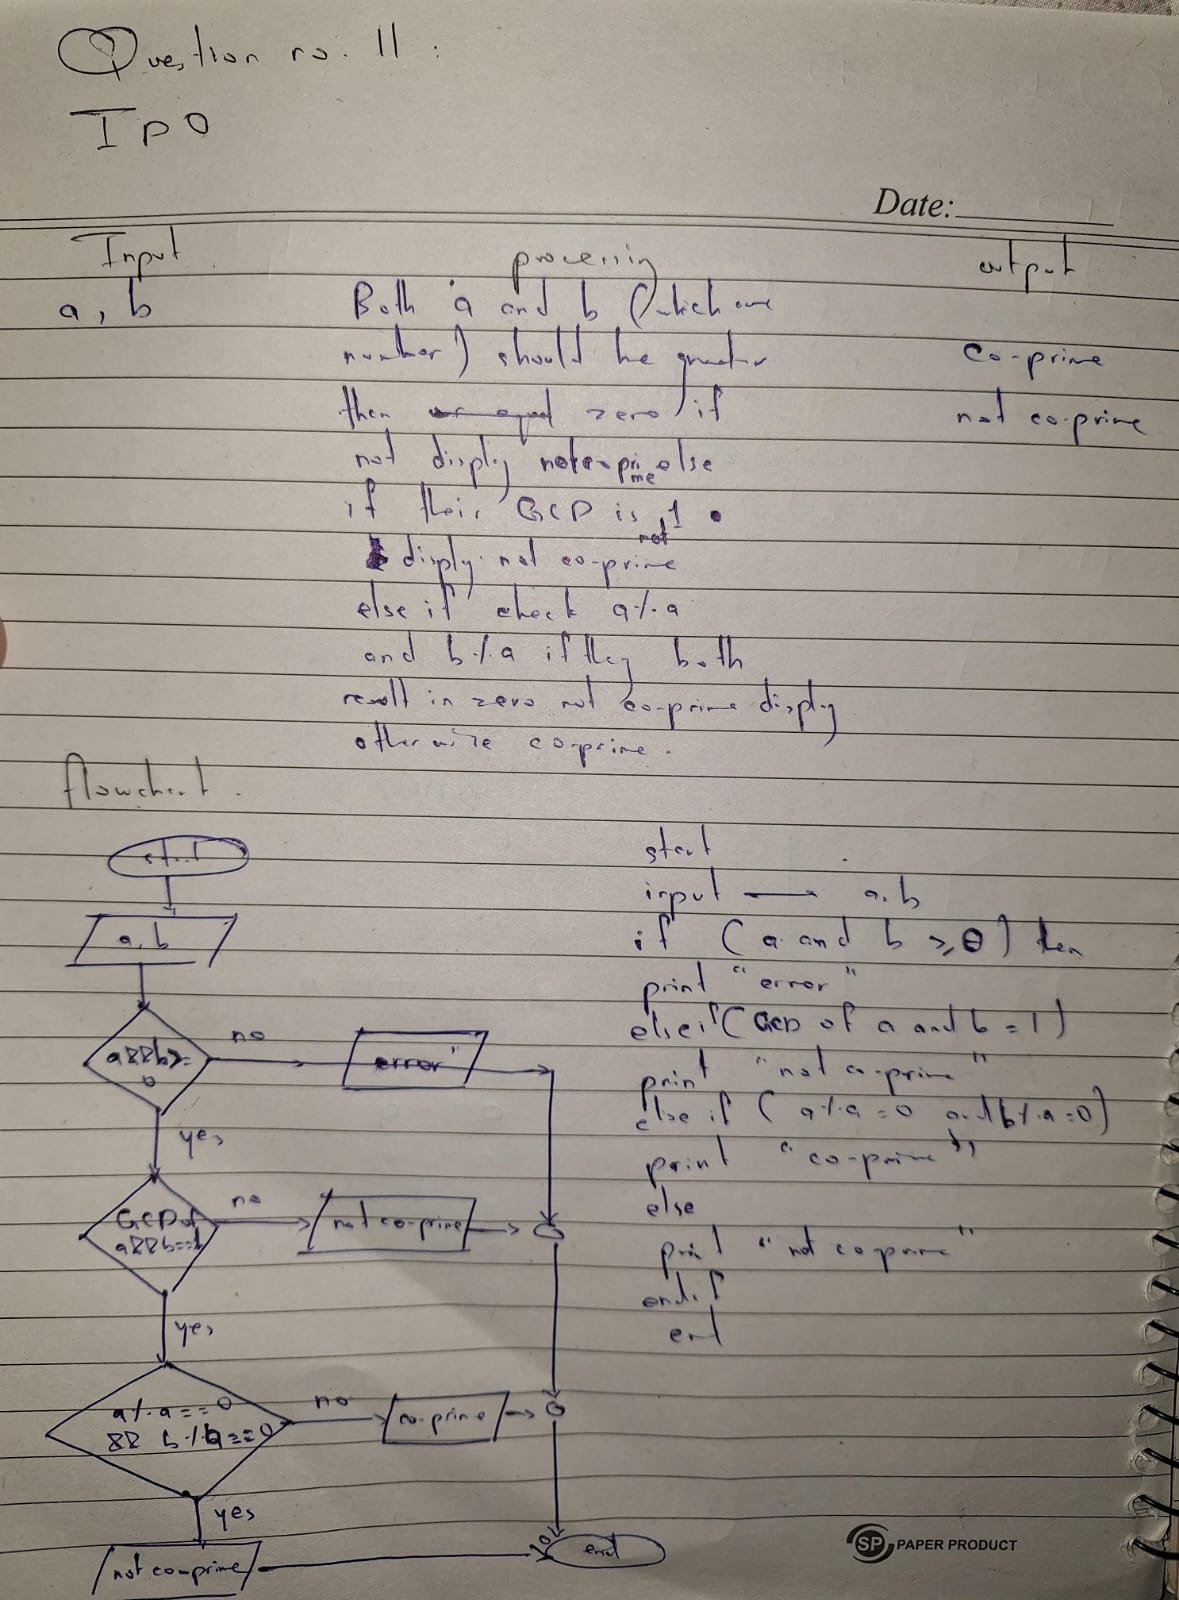 Question no. 11 :
IPO
Date:
Input processing output
a, b Both a and b (which are
number) should be greater co-prime
then or equal zero if not co-prime
not display not co-prime else
if their GCD is not 1
display not co-prime
else if check a % a
and b % a if they both
result in zero not co-prime display
otherwise co-prime.
flowchart.
start
a, b
a&&b>=
0
no
error"
yes
GCD of
a&&b==1
no
not co-prime
yes
a % a == 0
&& b % a == 0
no
co-prime
yes
not co-prime
end
start
input a, b
if (a and b ≥ 0) then
print "error"
else if (GCD of a and b = 1)
print "not co-prime"
else if (a % a = 0 and b % a = 0)
print "co-prime"
else
print "not co-prime"
endif
end
SP PAPER PRODUCT